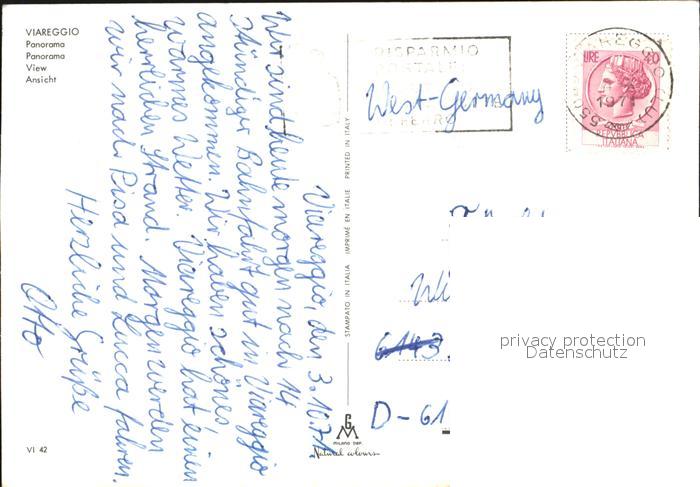 VIAREGGIO
Panorama
Panorama
View
Ansicht
Viareggio, den 3.10.71.
Wir sind heute morgen nach 14
stündiger Bahnfahrt gut in Viareggio
angekommen. Wir haben schönes,
warmes Wetter. Viareggio hat einen
herrlichen Strand. Morgen werden
wir nach Pisa und Lucca fahren.
Herzliche Grüße
Otto
VI 42
STAMPATO IN ITALIA IMPRIMÉ EN ITALIE PRINTED IN ITALY
MILANO DEP.
Natural colours
RISPARMIO
POSTALE
West-Germany
LIRE 40
VIAREGGIO
REPVBBLICA
ITALIANA
6143
D-61
privacy protection
Datenschutz